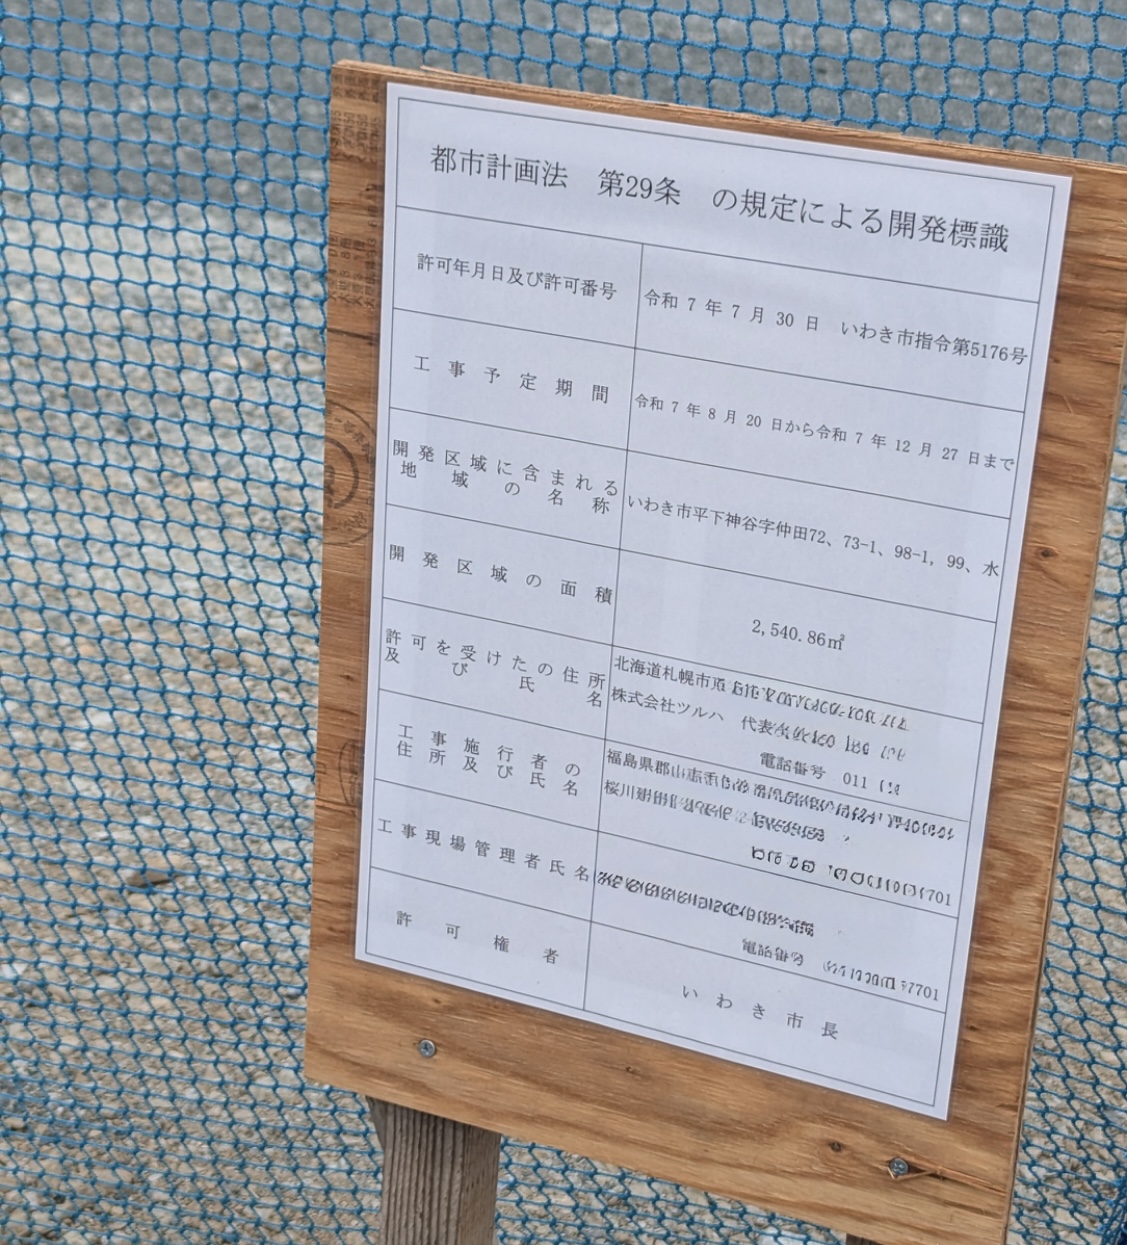 都市計画法　第29条　の規定による開発標識
許可年月日及び許可番号
令和 7 年 7 月 30 日　いわき市指令第5176号
工事予定期間
令和 7 年 8 月 20 日から令和 7 年 12 月 27 日まで
開発区域に含まれる
地域の名称
いわき市平下神谷字仲田72、73-1、98-1, 99、水
開発区域の面積
2,540.86㎡
許可を受けたの住所
及び氏名
北海道札幌市
株式会社ツルハ　代表
電話番号　011
工事施行者の
住所及び氏名
福島県郡山市
桜川
701
工事現場管理者氏名
電話番号 7701
許可権者
いわき市長